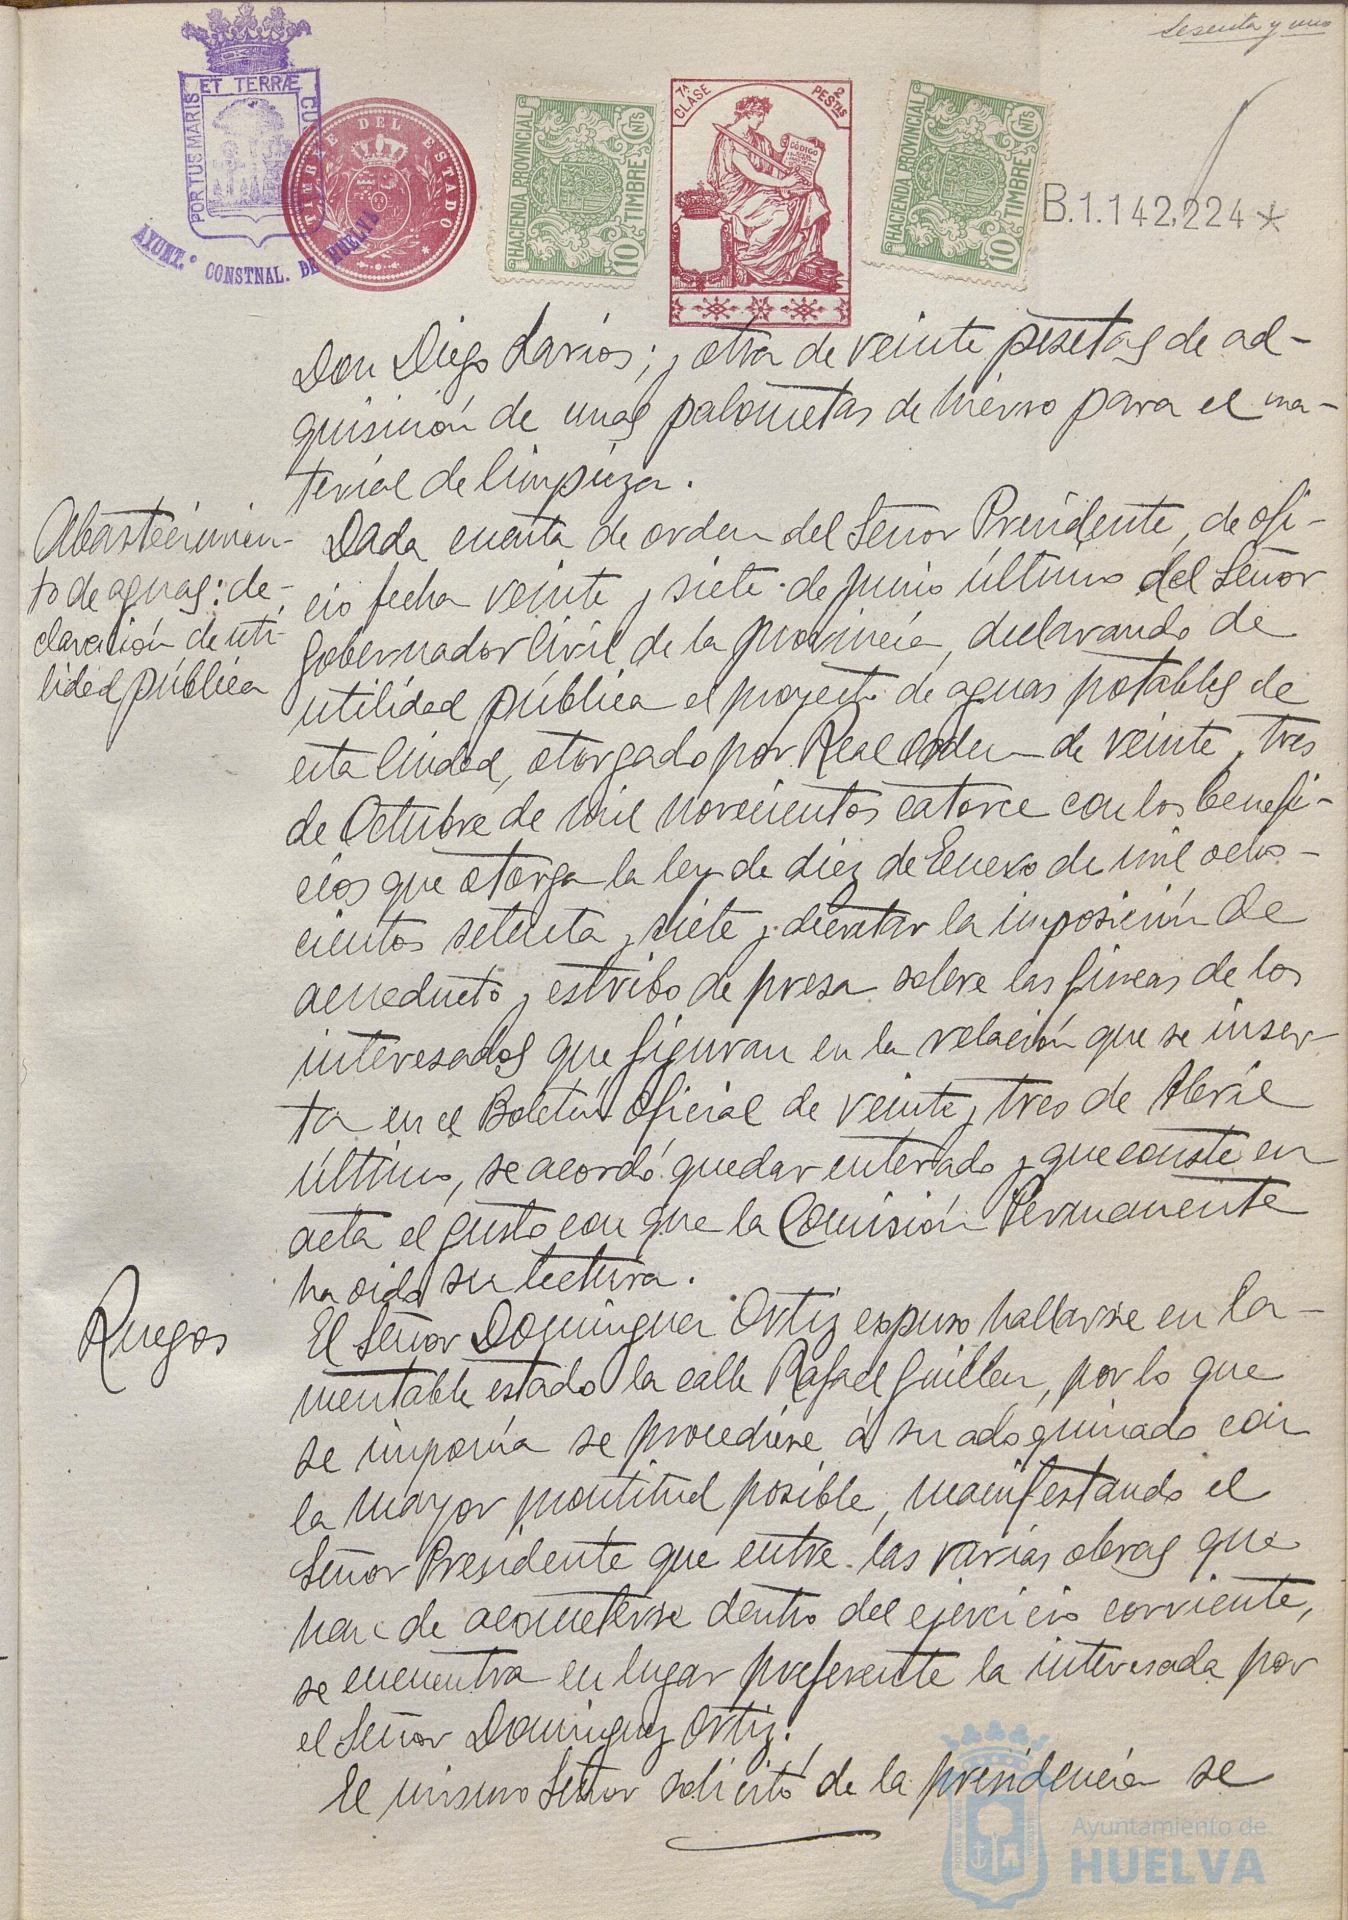 Sesenta y uno
PORTUS MARIS ET TERRÆ CUSTODIA
AYUNT.º CONSTNAL. DE HUELVA
TIMBRE DEL ESTADO
HACIENDA PROVINCIAL
10 CNTS
TIMBRE
7ª CLASE
2 PESTAS
CÓDIGO
HACIENDA PROVINCIAL
10 CNTS
TIMBRE
B.1.142.224*
Don Diego Larios; y otra de veinte pesetas de ad-
quisición de unas palometas de hierro para el ma-
terial de limpieza.
Abastecimien-
to de aguas: de-
claración de uti-
lidad pública
Dada cuenta de orden del Señor Presidente, de ofi-
cio fecha veinte y siete de junio último del Señor
Gobernador Civil de la provincia, declarando de
utilidad pública el proyecto de aguas potables de
esta Ciudad, otorgado por Real Orden de veinte y tres
de Octubre de mil novecientos catorce con los benefi-
cios que otorga la ley de diez de Enero de mil ochos-
cientos setenta y siete y decretar la imposición de
acueducto y estribo de presa sobre las fincas de los
interesados que figuran en la relación que se inser-
ta en el Boletín Oficial de veinte y tres de Abril
último, se acordó quedar enterado y que conste en
acta el gusto con que la Comisión Permanente
ha oido su lectura.
Ruegos
El Señor Dominguez Ortiz expuso hallarse en la-
mentable estado la calle Rafael Guillen, por lo que
se imponía se procediese á su adoquinado con
la mayor prontitud posible, manifestando el
Señor Presidente que entre las varias obras que
han de acometerse dentro del ejercicio corriente,
se encuentra en lugar preferente la interesada por
el Señor Dominguez Ortiz.
El mismo Señor solicitó de la presidencia se
Ayuntamiento de
HUELVA